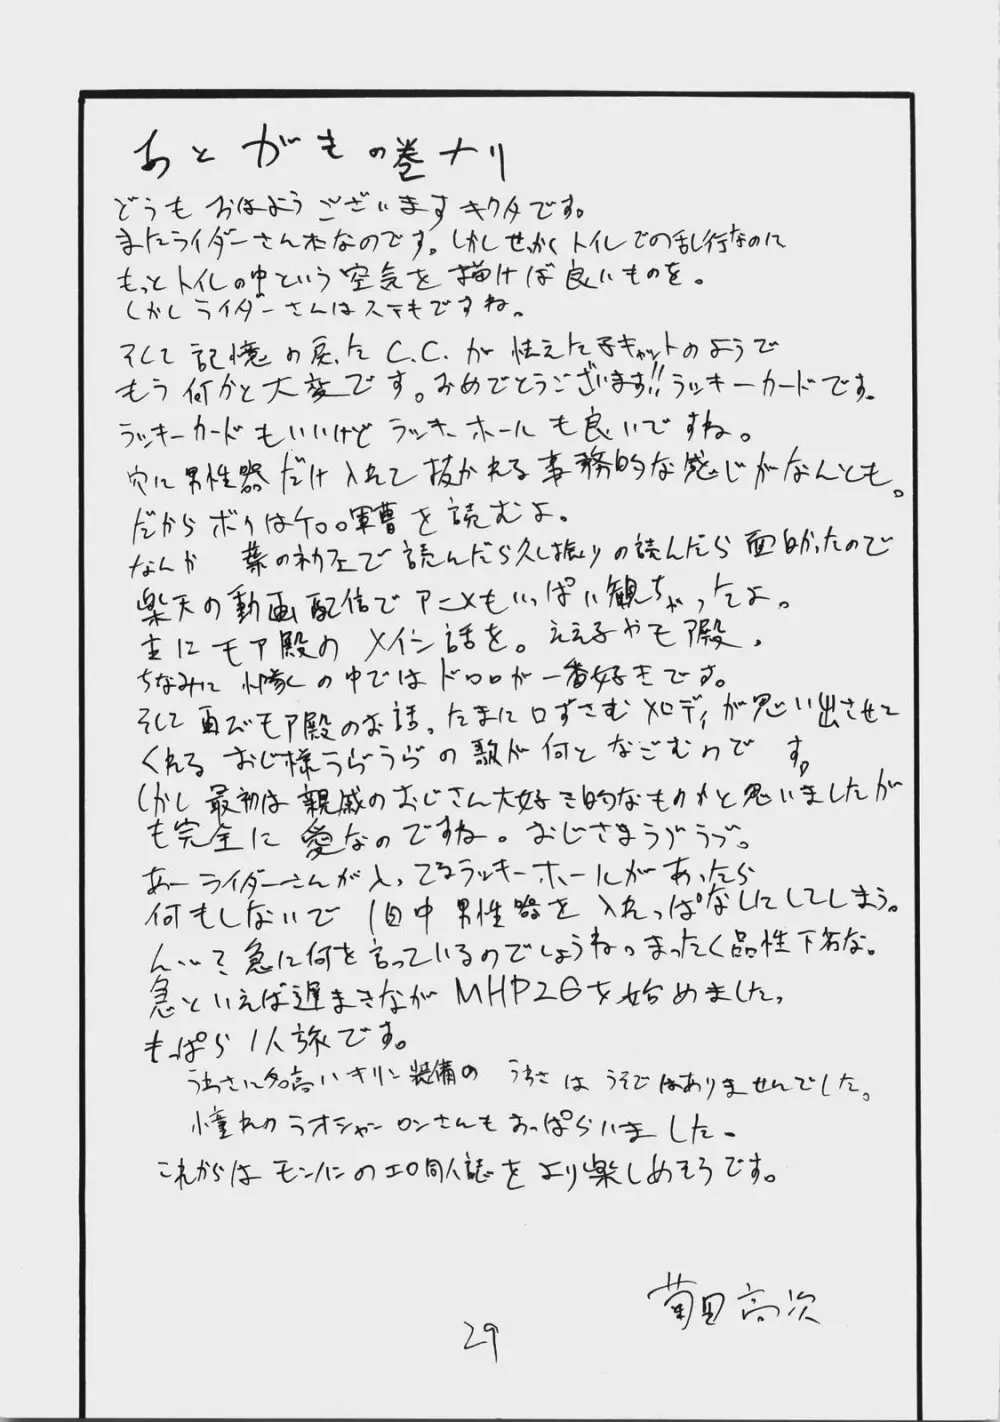 あとがきの巻ナリ
どうもおはようございますキクタです。
またライダーさん本なのです。しかしせっかくトイレでの乱行なのに
もっとトイレの中という空気を描けば良いものを。
しかしライダーさんはステキですね。
そして記憶の戻ったC.C.が怯えた子キャットのようで
もう何かと大変です。おめでとうございます!!ラッキーカードです。
ラッキーカードもいいけどラッキーホールも良いですね。
穴に男性器だけ入れて抜かれる事務的な感じがなんとも。
だからボクはケロロ軍曹を読むよ。
なんか 薬のネカフェで読んだら久し振りの読んだら面白かったので
楽天の動画配信でアニメもいっぱい観ちゃったよ。
主にモア殿のメイン話を。ええ子やモア殿。
ちなみに小隊の中ではドロロが一番好きです。
そして再びモア殿のお話、たまに口ずさむメロディが思い出させて
くれるおじ様らぶらぶの歌が何となごむわです。
しかし最初は親戚のおじさん大好き的なものかと思いましたが
も完全に愛なのですね。おじさまらぶらぶ。
あーライダーさんが入ってるラッキーホールがあったら
何もしないで1日中男性器を入れっぱなしにしてしまう。
ん…?急に何を言っているのでしょうね。まったく品性下劣な。
急といえば遅まきながMHP2Gを始めました。
もっぱら1人旅です。
うわさに名高いキリン装備のうわさはうそではありませんでした。
憧れのラオシャンロンさんもおっぱらいました。
これからはモンハンのエロ同人誌をより楽しめそうです。
菊田高次
29